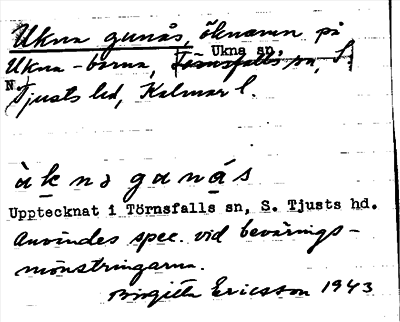 Ukna gunås, öknamn på
Ukna sn.
Ukna-borna, Törnsfalls sn, S.
N. Tjusts hd, Kalmar l.
ùknɑ gɑnás
Upptecknat i Törnsfalls sn, S. Tjusts hd.
Användes spec. vid bevärings-
mönstringarna.
Birgitta Ericsson 1943